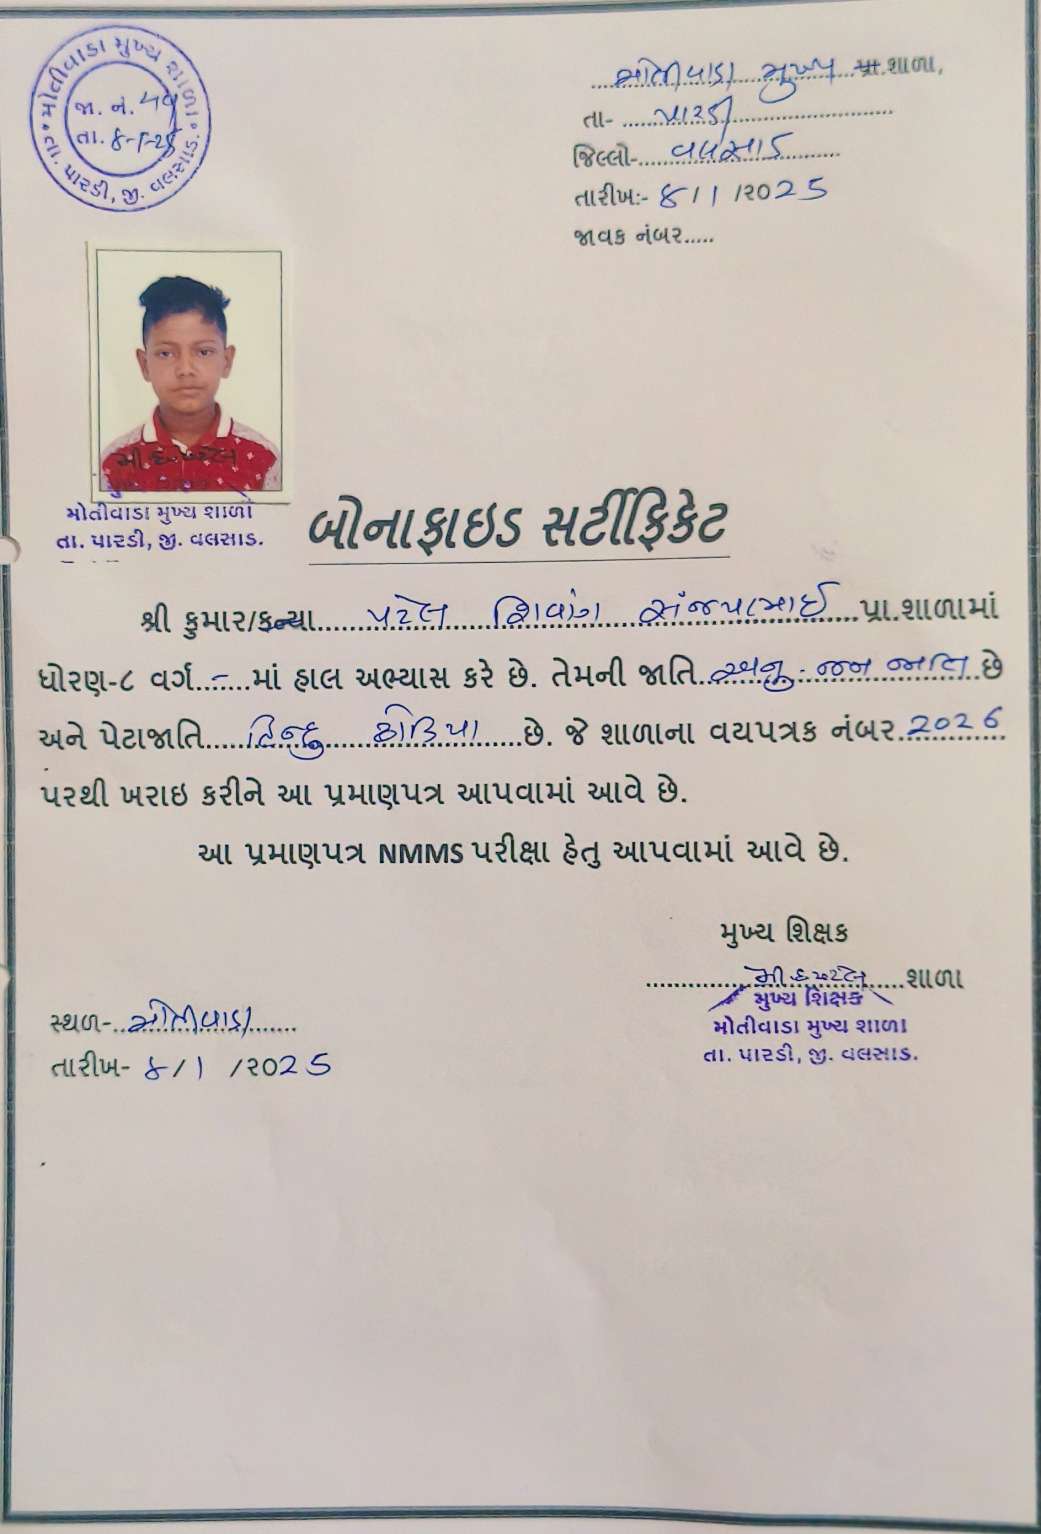 મોતીવાડા મુખ્ય શાળા
જા. નં.
તા. ૪-૧-૨૫
તા. પારડી, જી. વલસાડ.
મોતીવાડા મુખ્ય પ્રા.શાળા,
તા- પારડી
જિલ્લો- વલસાડ
તારીખઃ- ૪/૧/૨૦25
જાવક નંબર.....
મોતીવાડા મુખ્ય શાળા
તા. પારડી, જી. વલસાડ.
બોનાફાઇડ સર્ટીફિકેટ
શ્રી કુમાર/કન્યા પટેલ શિવાંગ સંજયભાઈ પ્રા.શાળામાં
ધોરણ-૮ વર્ગ..-...માં હાલ અભ્યાસ કરે છે. તેમની જાતિ અનુ. જન જાતિ છે
અને પેટાજાતિ હિન્દુ ઢોડિયા છે. જે શાળાના વયપત્રક નંબર 2026
પરથી ખરાઇ કરીને આ પ્રમાણપત્ર આપવામાં આવે છે.
આ પ્રમાણપત્ર NMMS પરીક્ષા હેતુ આપવામાં આવે છે.
મુખ્ય શિક્ષક
શાળા
મુખ્ય શિક્ષક
મોતીવાડા મુખ્ય શાળા
તા. પારડી, જી. વલસાડ.
સ્થળ- મોતીવાડા
તારીખ- ૪/૧/૨૦25